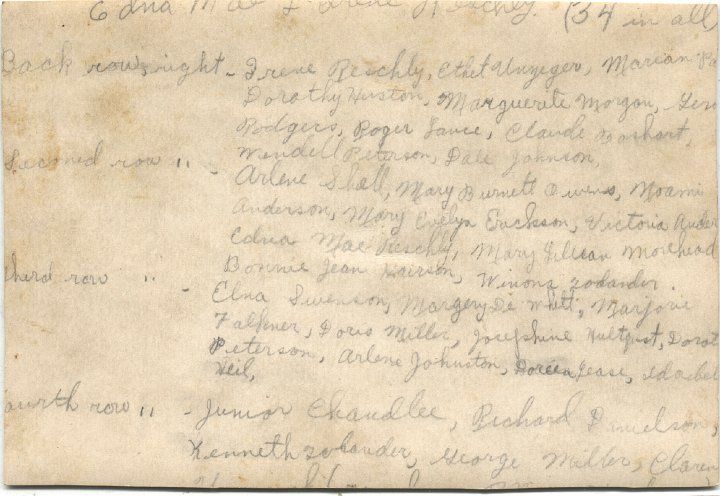 Edna Mae & Irene Reschly. (34 in all)
Back row, right - Irene Reschly, Ethel Unzeger, Marian
Dorothy Huston, Marguerite Morgan,
Rodgers, Roger Lauce, Claude Boshart,
Second row ,, - Wendell Peterson, Dale Johnson,
Arlene Shall, Mary Burnett Owens, Naomi
Anderson, Mary Evelyn Erickson, Victoria Ander
Edna Mae Reschly, Mary Lillian Morehead
Bonnie Jean Kairson, Winona Zolander.
third row ,, - Elna Swenson, Margery De Whitt, Marjorie
Falkner, Doris Miller, Josephine Hultquist, Dorot
Peterson, Arlene Johnston, Doreen Jease,
Heil,
ourth row ,, - Junior Chandlee, Richard Danielson,
Kenneth Zolander, George Miller, Claren